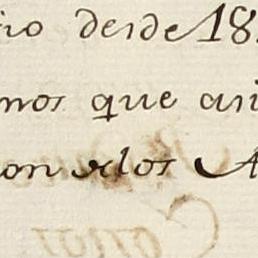 io desde 18
mos que asi
on los A